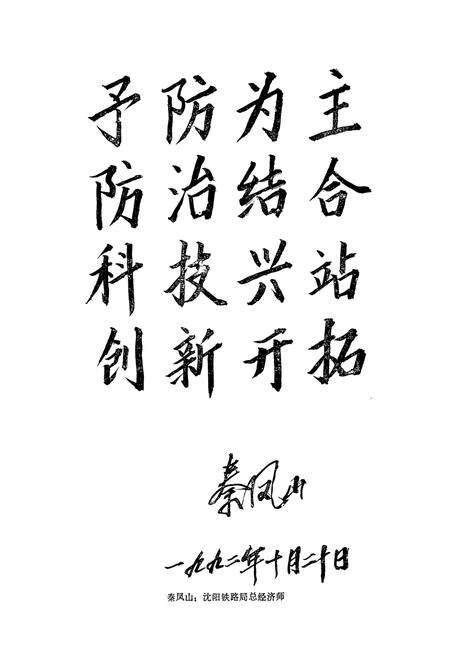 予防为主
防治结合
科技兴站
创新开拓
秦凤山
一九九二年十月二十日
秦凤山：沈阳铁路局总经济师